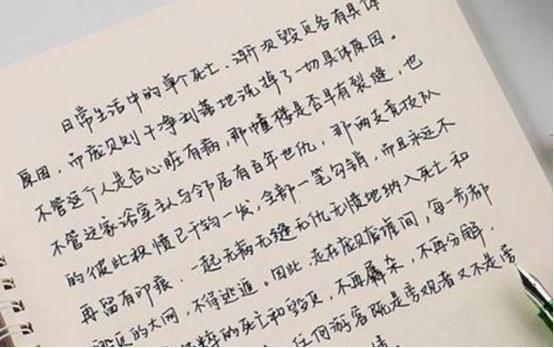 日常生活中的单个死亡、渐次毁灭各有具体
原因，而庞贝则干净利落地洗掉了一切具体原因。
不管这个人是否心脏有病，那幢楼是否早有裂缝，也
不管这家浴室主人与邻居有百年世仇，那两支竞技队
的彼此积愤已千钧一发，全部一笔勾销，而且永远不
再留有印痕，一起无病无缝无仇无愤地纳入死亡和
毁灭的大网，不得逃遁。因此，走在庞贝废墟间，每一步都
纯粹的死亡和毁灭，不再羼杂，不再分解，
任何游客既是旁观者又不是旁